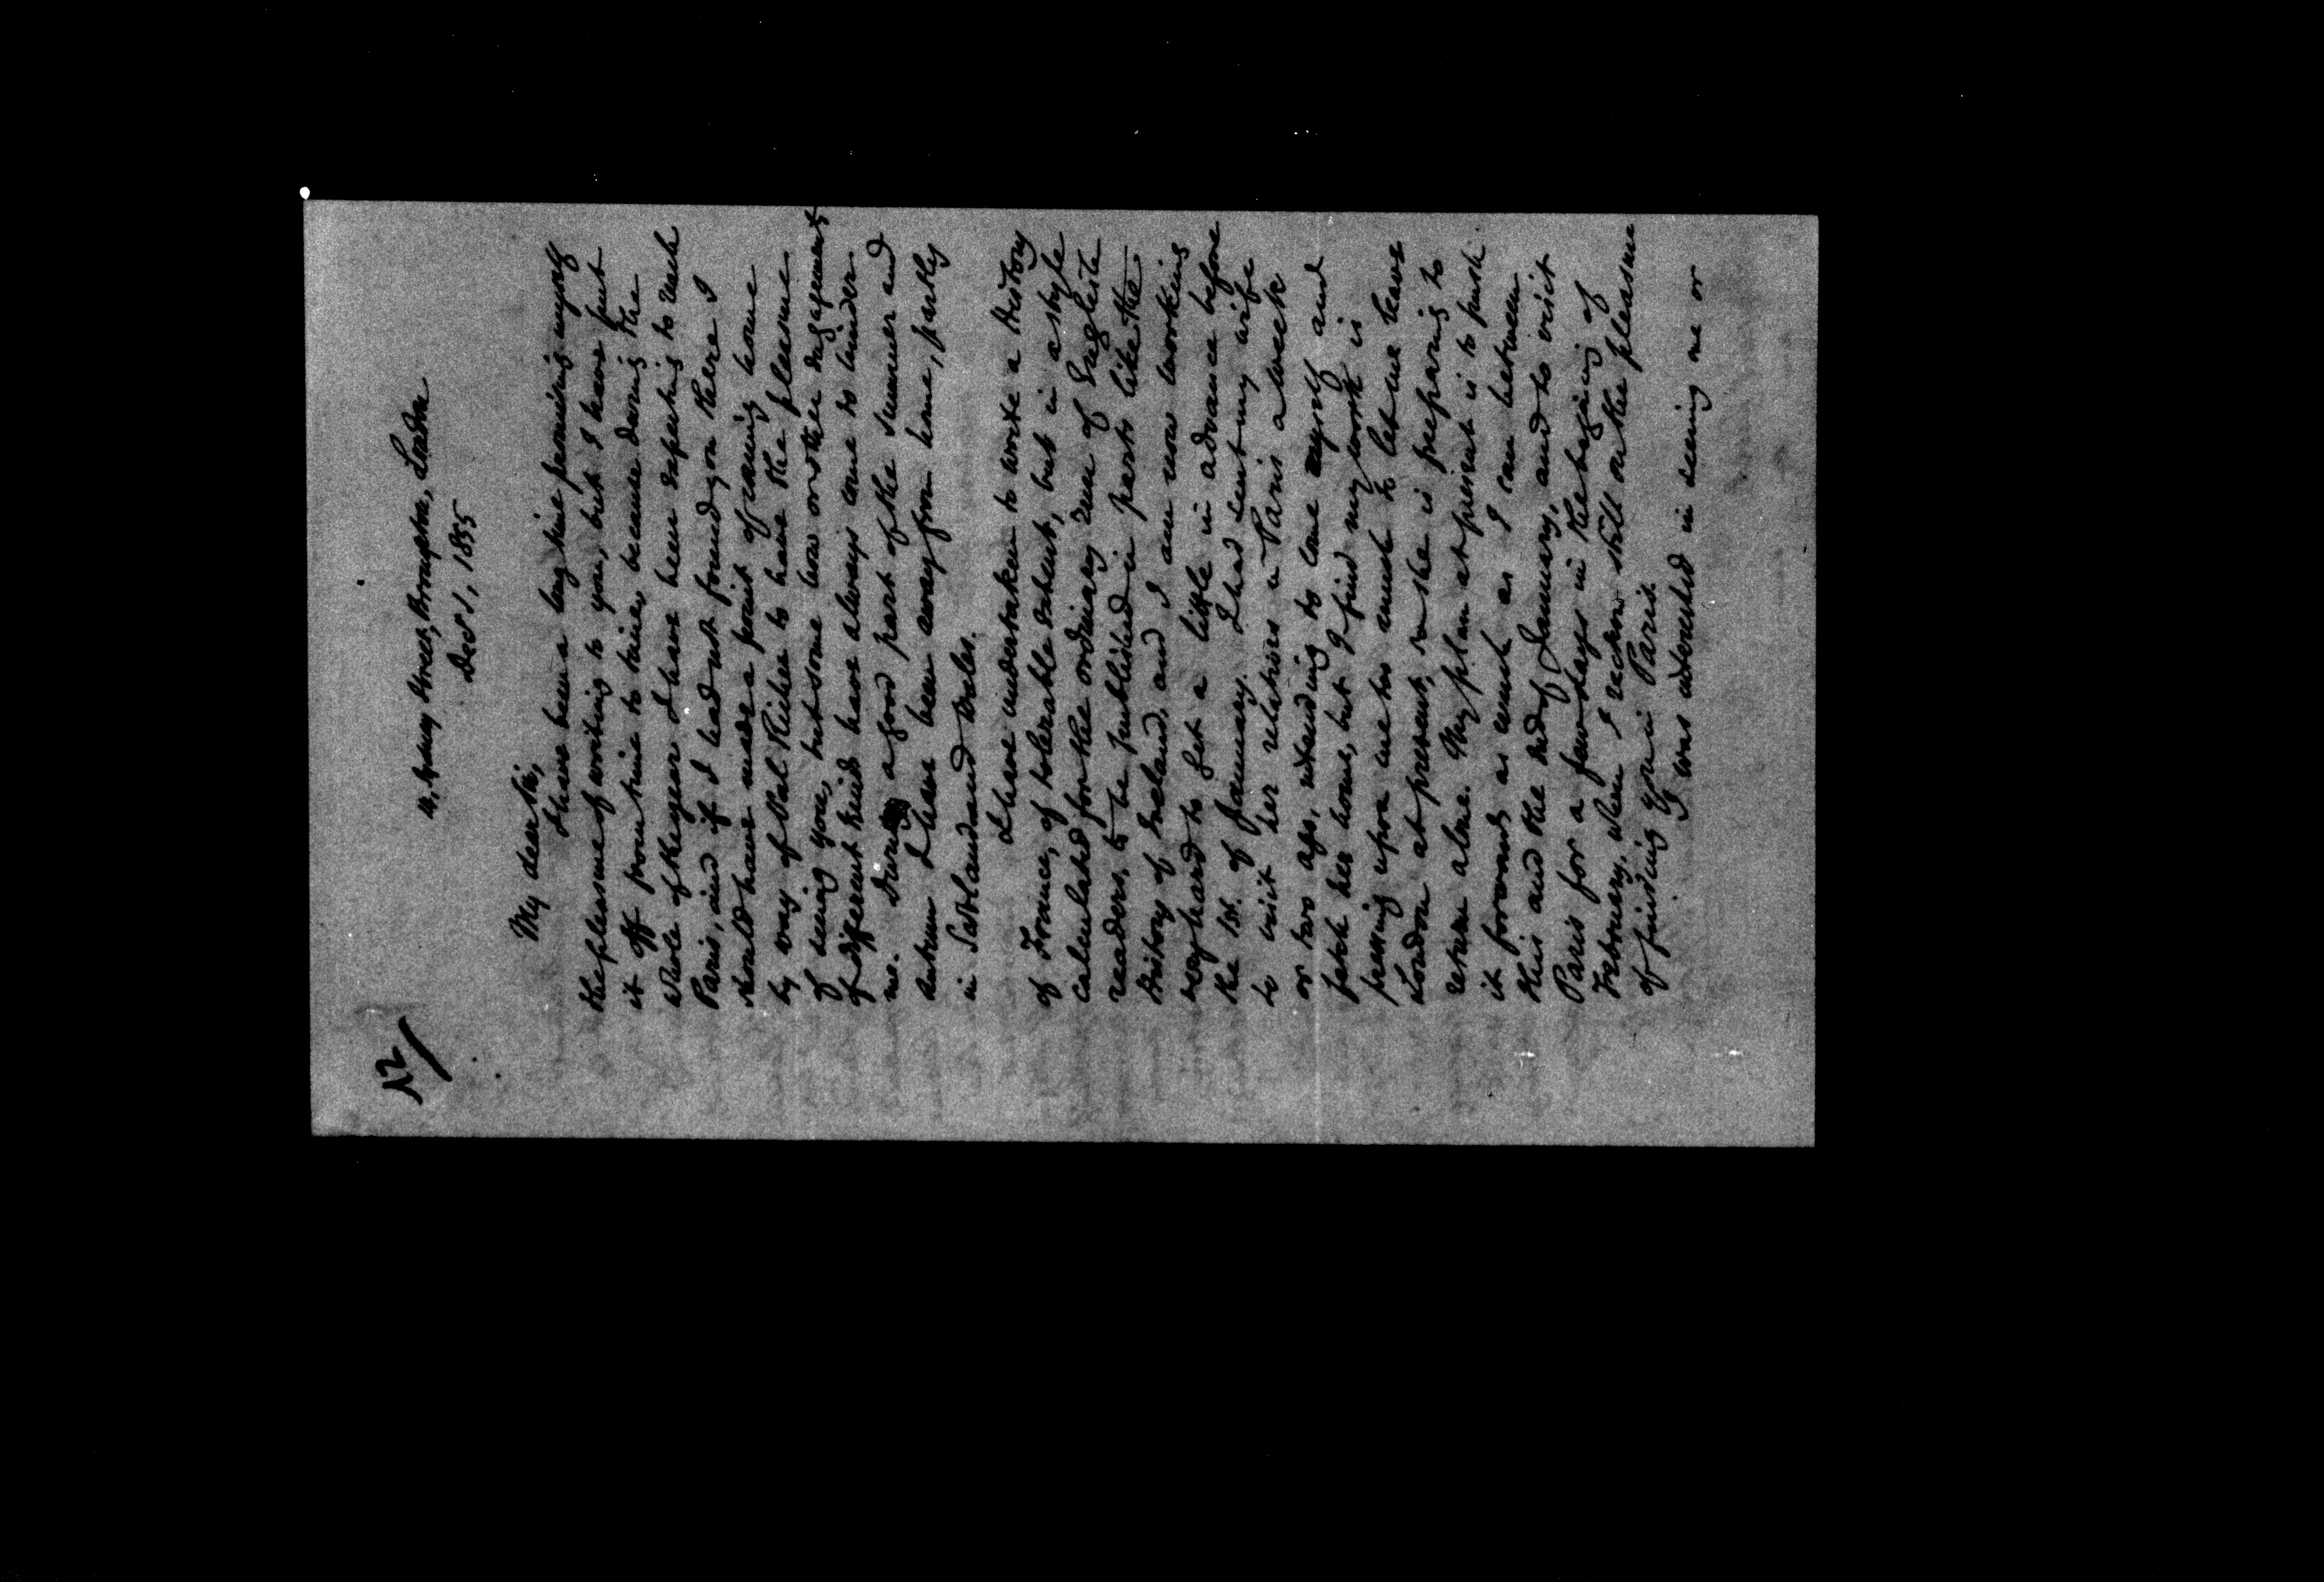 12/
4, Sydney Street, Brompton, London
Dec 1, 1855
My dear Sir,
I have been a long time promising myself
the pleasure of writing to you, but I have put
it off from time to time, because during the
whole of the year I have been expecting to visit
Paris, and if I had not found you there I
should have made a point of coming home
by way of Val Richer to have the pleasure
of seeing you, but some how or other engagements
of different kinds have always come to hinder
me. During a good part of the summer and
autumn I have been away from home, partly
in Scotland and Wales.
I have undertaken to write a History
of France, of tolerable extent, but in a style
calculated for the ordinary run of English
readers, to be published in parts like the
History of Ireland, and I am now working
very hard to get a little in advance before
the 1st. of January. I had sent my wife
to visit her relations in Paris a week
or two ago, intending to come myself and
fetch her home, but I find my work is
pressing upon me too much to let me leave
London at present, so she is preparing to
return alone. My plan at present is to push
it forwards as much as I can between
this and the end of January, and to visit
Paris for a few days in the beginning of
February, when I reckon still on the pleasure
of finding you in Paris.
I was interested in seeing one or